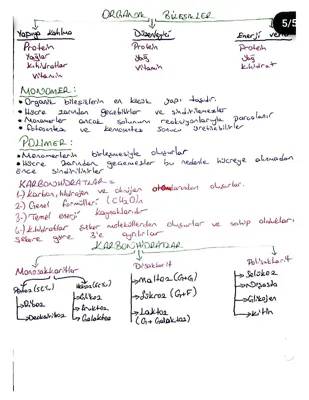 ORGANİK BİLEŞİKLER
5/5
Yapıya katılma Düzenleyici Enerji
Protein Protein Protein
Yağlar Yağ Yağ
K.hidratlar Vitamin K.hidrat
Vitamin
MONOMER:
• Organik bileşiklerin en küçük yapı taşıdır.
• Hücre zarından geçebilirler ve sindirilemezler
• Monomerler ancak solunum reaksiyonlarıyla parçalanır
• Fotosentez ve kemosentez sonucu üretilebilirler
POLİMER:
• Monomerlerin birleşmesiyle oluşurlar
• Hücre zarından geçemezler bu nedenle hücreye alınmadan
önce sindirilirler
KARBONHİDRATLAR =
1-) Karbon, hidrojen ve oksijen atomlarından oluşurlar.
2-) Genel formülleri (CH₂O)n
3-) Temel enerji kaynaklarıdır
4-) K.hidratlar şeker moleküllerinden oluşurlar ve sahip oldukları
şekere göre 3'e ayrılırlar
KARBONHİDRATLAR
Monosakkaritler Disakkarit Polisakkarit
Pentoz (5C'li) Hexoz (6C'li) Maltoz (G+G) Selüloz
Riboz Glikoz Sükroz (G+F) Nişasta
Deoksiriboz Fruktoz Laktoz Glikojen
Galaktoz (G+Galaktoz) Kitin